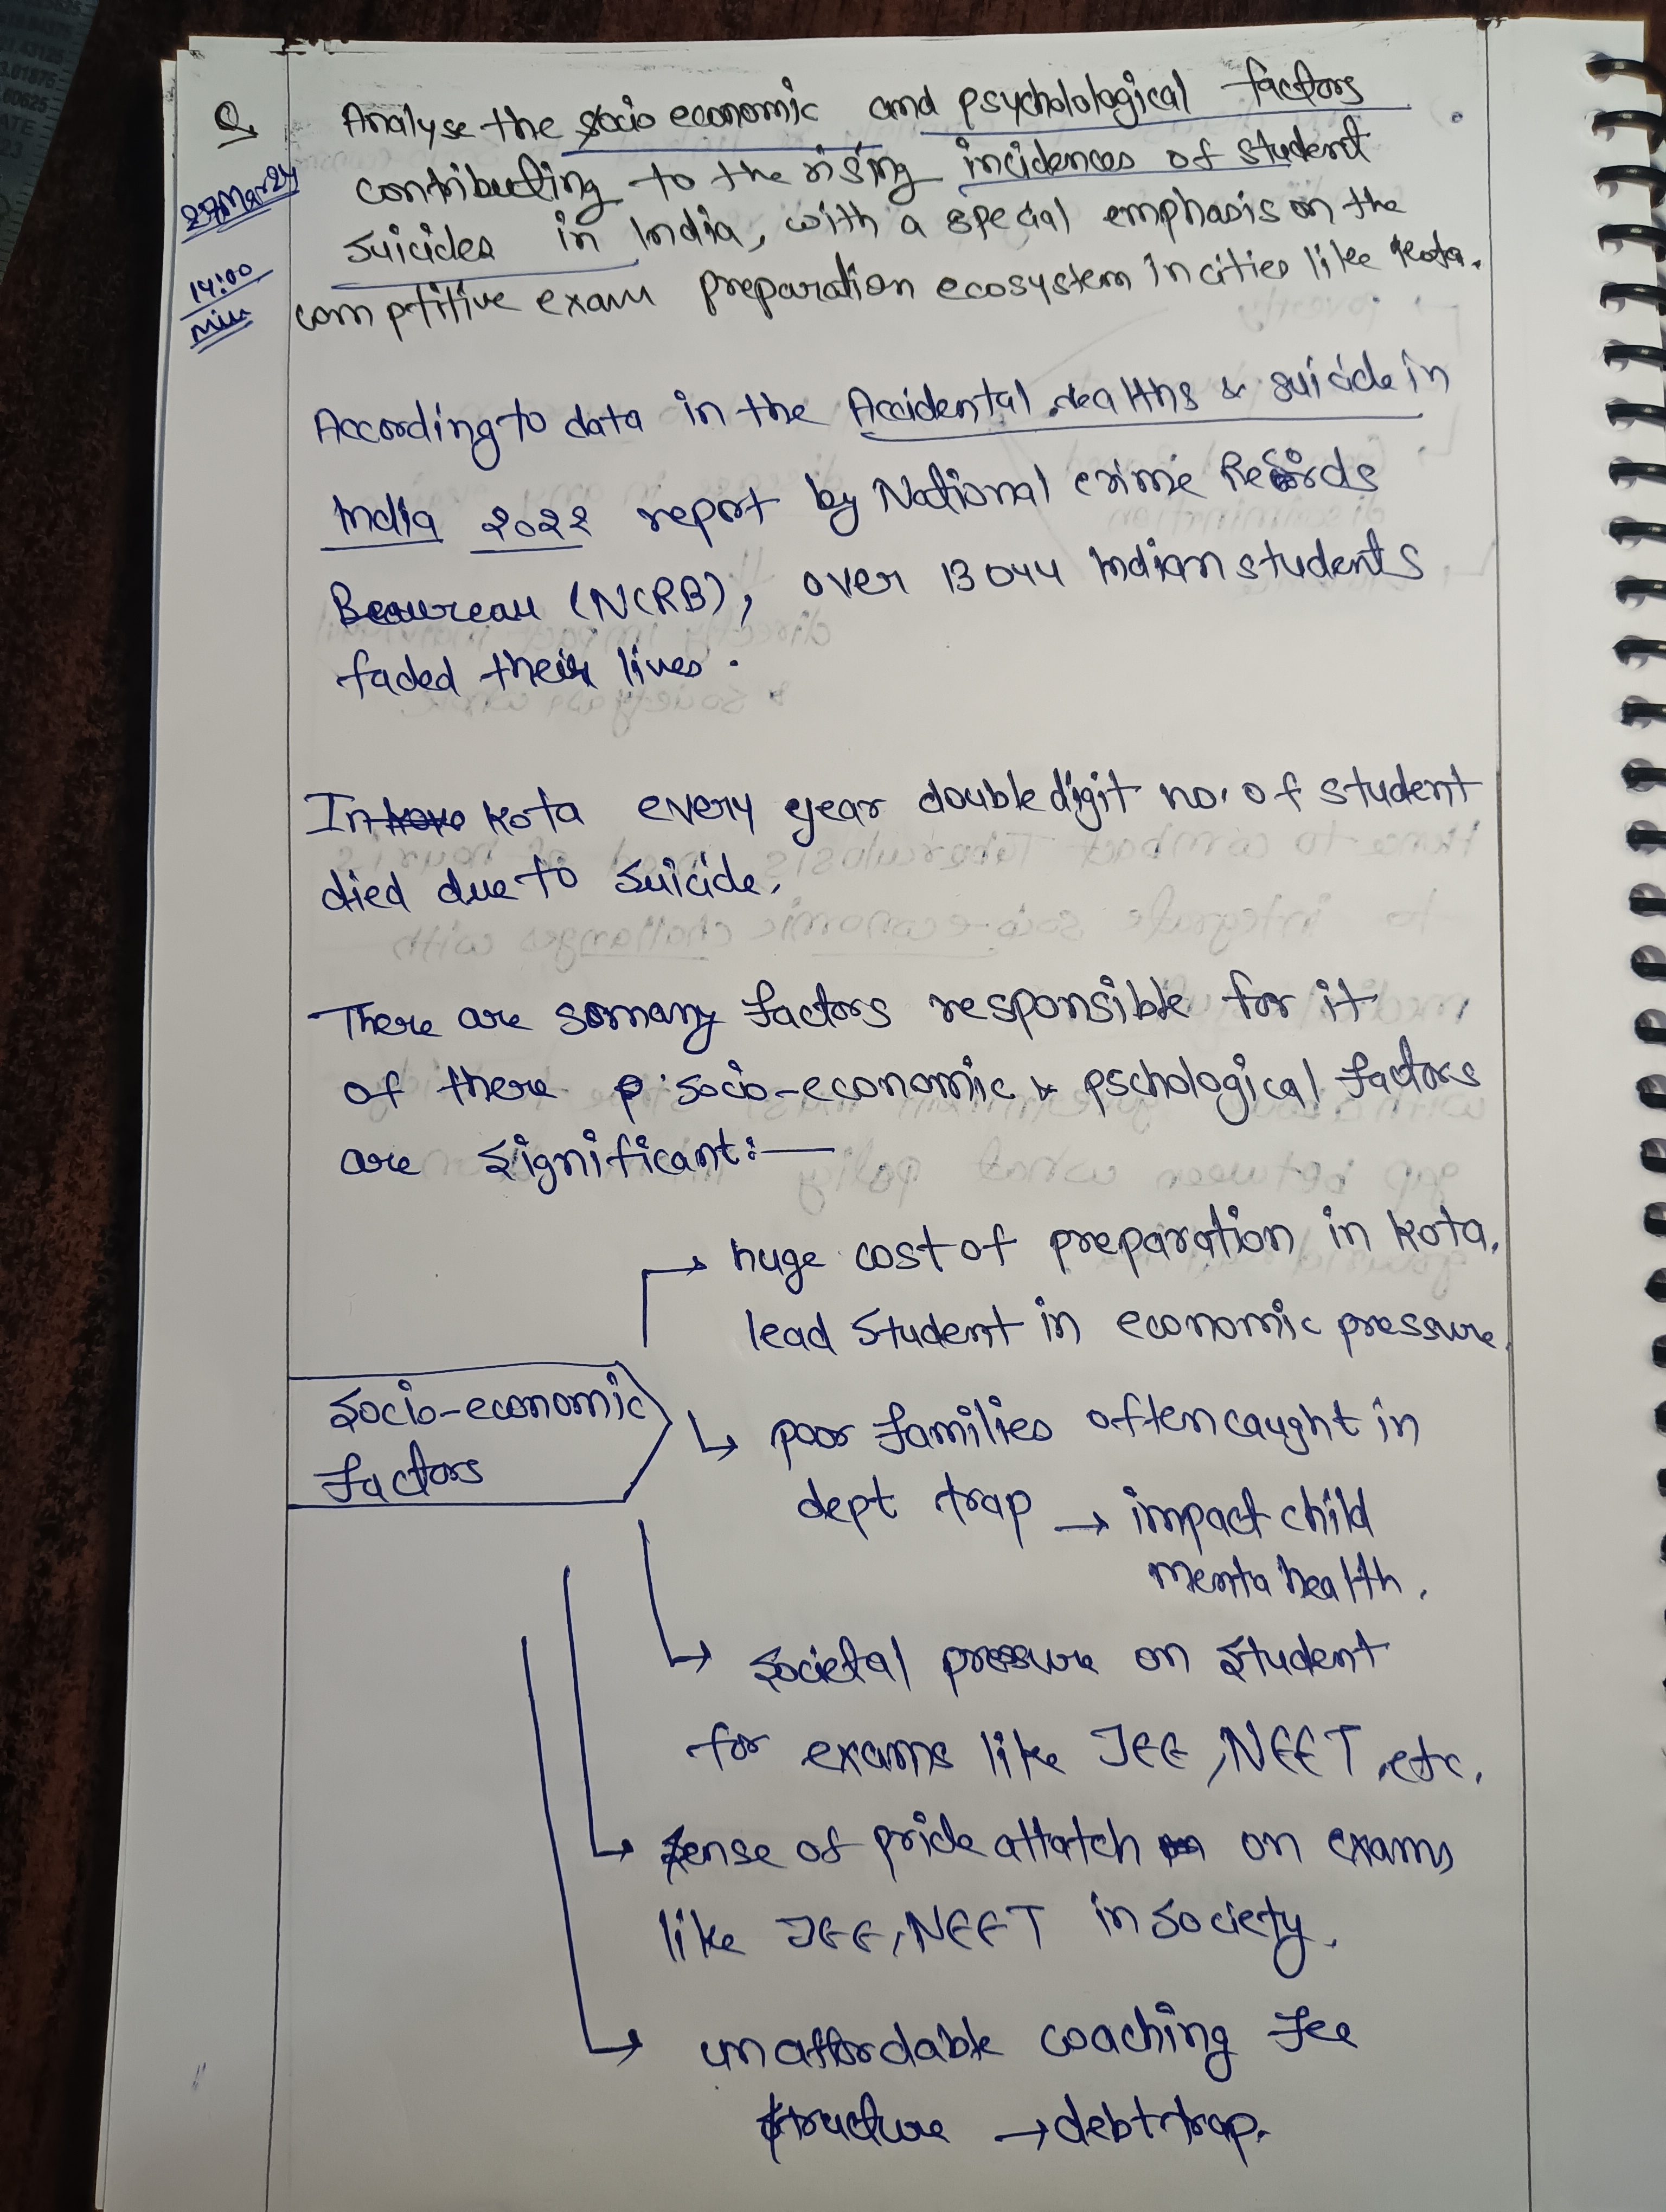 Q
Analyse the socio economic and psycholological factors
contributing to the rising incidences of student
27Mar24
suicides in India, with a special emphasis on the
14:00
min
comptitive exam preparation ecosystem in cities like Kota.
According to data in the Accidental deaths & suicide in
India 2022 report by National crime Records
Beaureau (NCRB), over 13044 Indian students
faded their lives.
In Kota every year double digit no. of student
died due to suicide.
There are somany factors responsible for it
of there socio-economic & pschological factors
are significant:—
→ huge cost of preparation in Kota.
lead student in economic pressure.
Socio-economic
factors
↳ poor families often caught in
dept trap → impact child
menta health.
↳ societal pressure on student
for exams like JEE, NEET, etc.
↳ sense of pride attatch on exams
like JEE, NEET in society.
↳ unaffordable coaching fee
structure → debt trap.